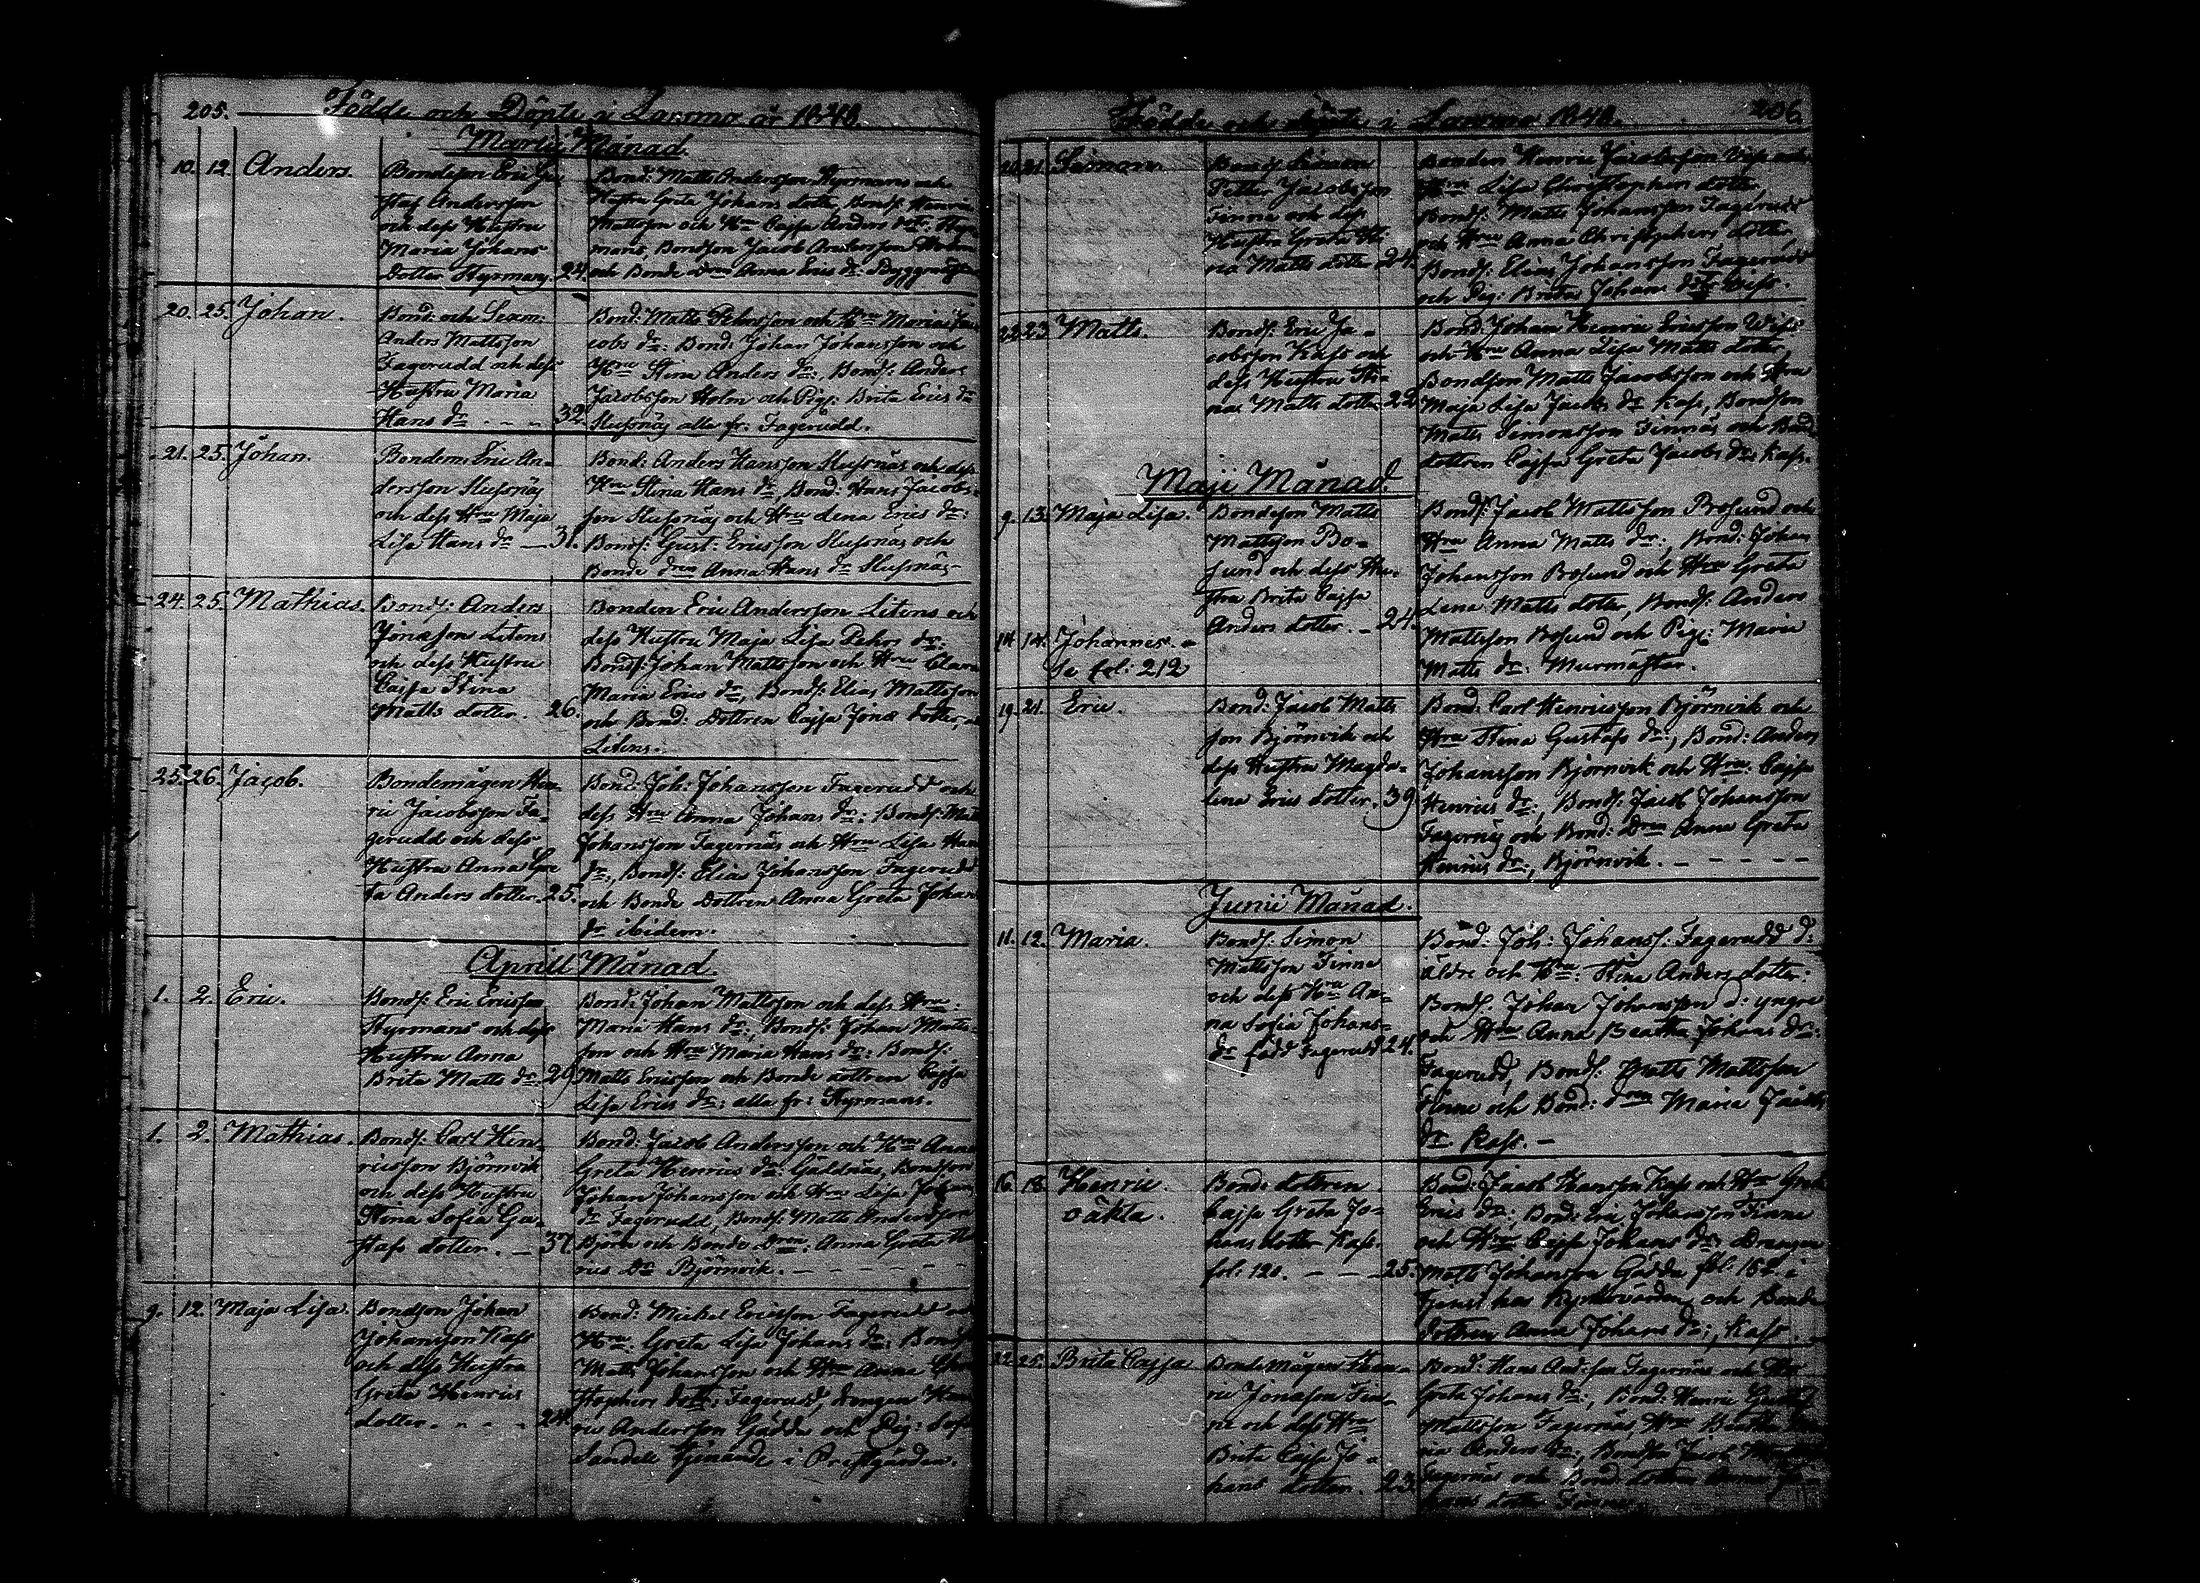 205. Födde och Döpte i Larsmo år 1848.
Martii Månad.
10. 12. Anders.
Bondeson Eric Gu
staf Andersson
och dess Hustru
Maria Johans
dotter Styrmans. 24.
Bond: Matts Andersson Styrmans och
Hustru Greta Johans dotter, Bonds: Henric
Mattsson och Hru Cajsa Anders dotr: Styr
mans, Bondson Jacob Andersson Holm
och Bonde Dren Anna Erics dr: Byggmästar
20. 25. Johan.
Bond: och Seam:
Anders Mattsson
Fagerudd och dess
Hustru Maria
Hans dr - - - 32.
Bond: Matts Pehrsson och Hru Maria Ja
cobs dr: Bond: Johan Johansson och
Hru Stina Anders dr:, Bonds: Anders
Jacobsson Holm och Pig: Brita Erics dr
Slusnäs alla fr: Fagerudd.
21. 25. Johan.
Bonden Eric An-
dersson Slusnäs
och dess Hru Maja
Lisa Hans dr — 31.
Bond: Anders Hansson Slusnäs och dess
Hru Stina Hans dr, Bond: Hans Jacobs-
son Slusnäs och Hru Lena Erics dr:
Bonds: Gust: Ericsson Slusnäs och
Bonde dren Anna Hans dr Slusnäs-
24. 25. Mathias.
Bonds: Anders
Jonasson Litens
och dess Hustru
Cajsa Stina
Matts dotter. 26.
Bonden Eric Andersson Litens och
dess Hustru Maja Lisa Pehrs dr:
Bonds: Johan Mattsson och Hru Clara
Maria Erics dr, Bonds: Elias Mattsson
och Bond: dottren Cajsa Jonæ dotter,
Litens.
25. 26. Jacob.
Bondemågen Hen-
ric Jacobsson Fa-
gerudd och dess
Hustru Anna Gre
ta Anders dotter. 25.
Bond: Joh: Johansson Fagerudd och
dess Hru Anna Johans dr: Bonds: Matts
Johansson Fagernäs och Hru Lisa Hans
dr:, Bonds: Elia Johansson Fagerudd
och Bonde dottren Anna Greta Johans
dr ibidem.
April Månad.
1. 2. Eric.
Bonds: Eric Ericsson
Styrmans och dess
Hustru Anna
Brita Matts dr. 29
Bond: Johan Mattsson och dess Hru:
Maria Hans dr:, Bonds: Johan Matts-
son och Hru Maria Hans dr: Bonds:
Matts Ericsson och Bonde dottren Cajsa
Lisa Erics dr: alla fr: Styrmans.
1. 2. Mathias.
Bonds: Carl Hen-
ricsson Björnvik
och dess Hustru
Stina Sofia Gu-
stafs dotter. — 37.
Bond: Jacob Andersson och Hru Anna
Greta Henrics dr: Gäldnäs, Bondson
Johan Johansson och Hru Lisa Johans
dr Fagerudd, Bonds: Matts Andersson
Björn och Bonde Dren: Anna Greta Hen
rics Dr Björnvik. - - - - - -
9. 12. Maja Lisa.
Bondson Johan
Johansson Kass
och dess Hustru
Greta Henrics
dotter. - - - 24.
Bond: Michel Ericsson Fagerudd och
Hru Greta Lisa Johans dr: Bonds:
Matts Johansson och Hru Anna Chri
stophers dottr: Fagerudd, drengen Hen
ric Andersson Gädda och Pig: Sofi
Sandell tjenande i Prestgården.
Födde och döpte i Larsmo 1848. 206
21. Simon.
Bonds: Simon
Petter Jacobsson
Finne och dess
Hustru Greta Sti
na Matts dotter 24.
Bonden Henric Jacobsson Wiss och
Hru Lisa Christophers dotter,
Bonds: Matts Johansson Fagerudd
och Hru Anna Christophers dotter,
Bonds: Elias Johansson Fagerudd
och Pig: Brita Johans dotr Wiss.
22. 23 Matts.
Bonds: Eric Ja-
cobsson Kass och
dess Hustru Sti-
na Matts dotter 22.
Bond: Johan Henric Ericsson Wiss
och Hru Anna Lisa Matts dotter,
Bondson Matts Jacobsson och Hru
Maja Lisa Jacobs dr Kass, Bondson
Matts Simonsson Finnäs och Bond
dottren Cajsa Greta Jacobs dr: Kass.
Maji Månad.
9. 13. Maja Lisa.
Bondeson Matts
Mattsson Bo-
sund och dess Hu-
stru Brita Cajsa
Anders dotter. - 24.
Bonds: Jacob Mattsson Bosund och
Hru Anna Matts dr:, Bond: Johan
Johansson Bosund och Hru Greta
Lena Matts dotter, Bonds: Anders
Mattsson Bosund och Pig: Maria
Matts dr: Murmästar.
14. 14. Johannes.
Se fol: 212
19. 21. Eric.
Bond: Jacob Matts
son Björnvik och
dess Hustru Magda-
lena Erics dotter. 39
Bond: Carl Henricsson Björnvik och
Hru Stina Gustafs dr:, Bond: Anders
Johansson Björnvik och Hru: Cajsa
Henrics dr:, Bonds: Jacob Johansson
Fagernäs och Bond: Dren Anna Greta
Henrics dr:, Björnvik. - - - - -
Junii Månad.
11. 12. Maria.
Bonds: Simon
Mattsson Finne
och dess Hru An-
na Sofia Johans-
dr född Fagerudd 24.
Bond: Joh: Johanss: Fagerudd d:
äldre och Hru: Stina Anders dotter:
Bonds: Johan Johansson d: yngre
och Hru Anna Beatha Johans dr:
Fagerudd, Bonds: Matts Mattsson
Finne och Bond: dren Maria Jacobs
dr. Kass. -
16. 18. Henric.
oäkta.
Bonde dottren
Cajsa Greta Jo-
hans dotter Kass.
fol: 120. - - 25.
Bond: Jacob Hansson Kass och Hru Greta
Erics dr:, Bond: Eric Johansson Finne
och Hru Cajsa Johans dr:, Drengen
Matts Johansson Gädda fol: 152 i
tjenst hos Kyrkovärden och Bonde
dottren Anna Johans dr:, Kass.
25. Brita Cajsa
Bondemågen Hen-
ric Jonasson Fin-
ne och dess Hru
Brita Cajsa Jo-
hans dotter. 23.
Bond: Hans And:son Fagernäs och Hru
Greta Johans dr:, Bond: Henric Gustaf
Mattsson Fagernäs, Hru Beatha
Anders dr:, Bondson Jacob
Fagernäs och Bond: dottren Anna Jo-
hans dotter Finne.